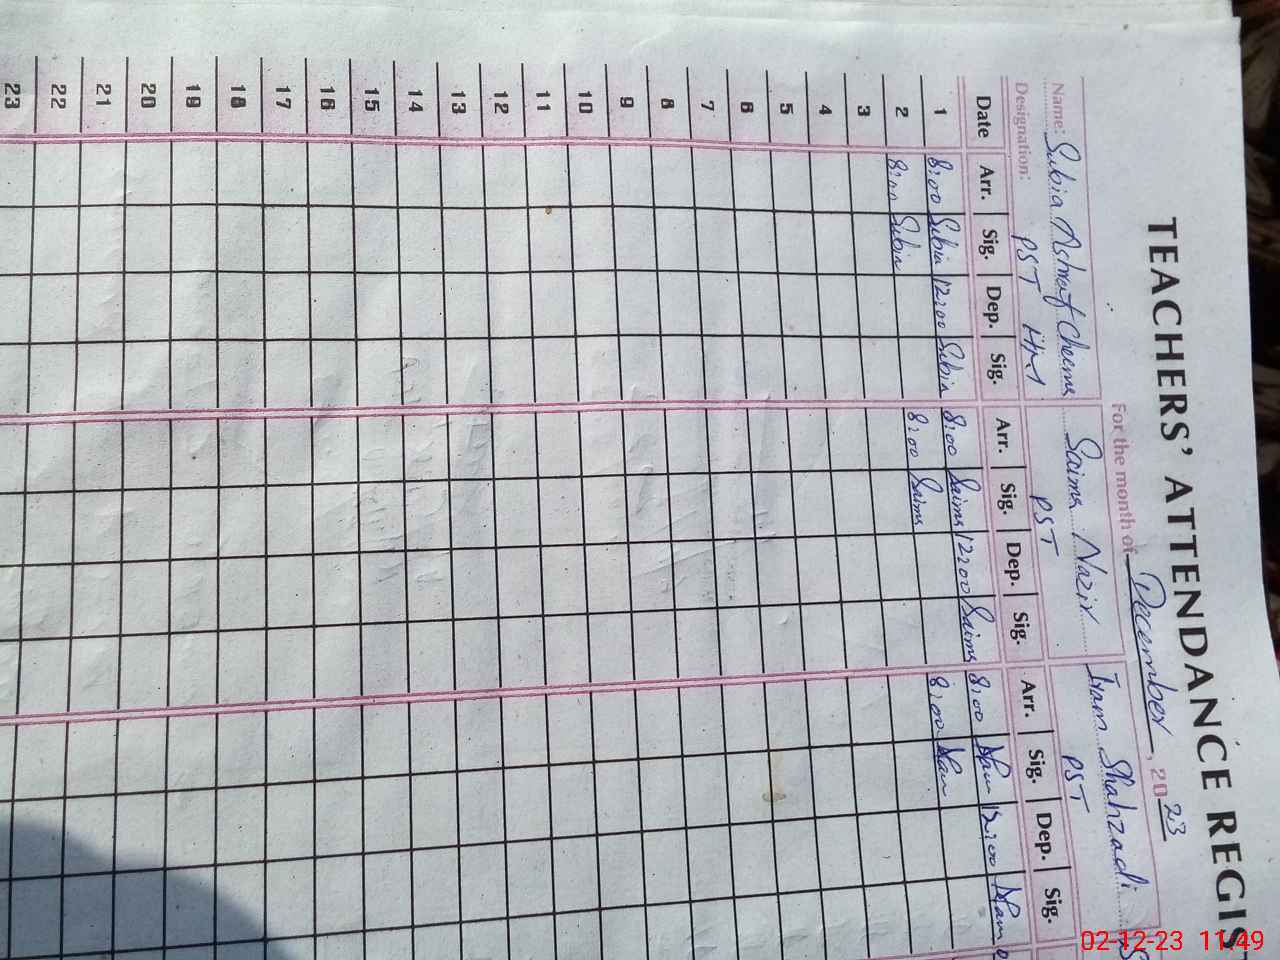 TEACHERS' ATTENDANCE REGIS
For the month of December, 2023
Name: Subia Ashraf Cheema Saima Nazir Iram Shahzadi
Designation: PST PST PST
Date Arr. Sig. Dep. Sig. Arr. Sig. Dep. Sig. Arr. Sig. Dep. Sig.
1 8:00 Subia 12:00 Subia 8:00 Saima 12:00 Saima 8:00 Iram 12:00 Iram
2 8:00 Subia 8:00 Saima 8:00 Iram
3
4
5
6
7
8
9
10
11
12
13
14
15
16
17
18
19
20
21
22
23
02-12-23 11:49